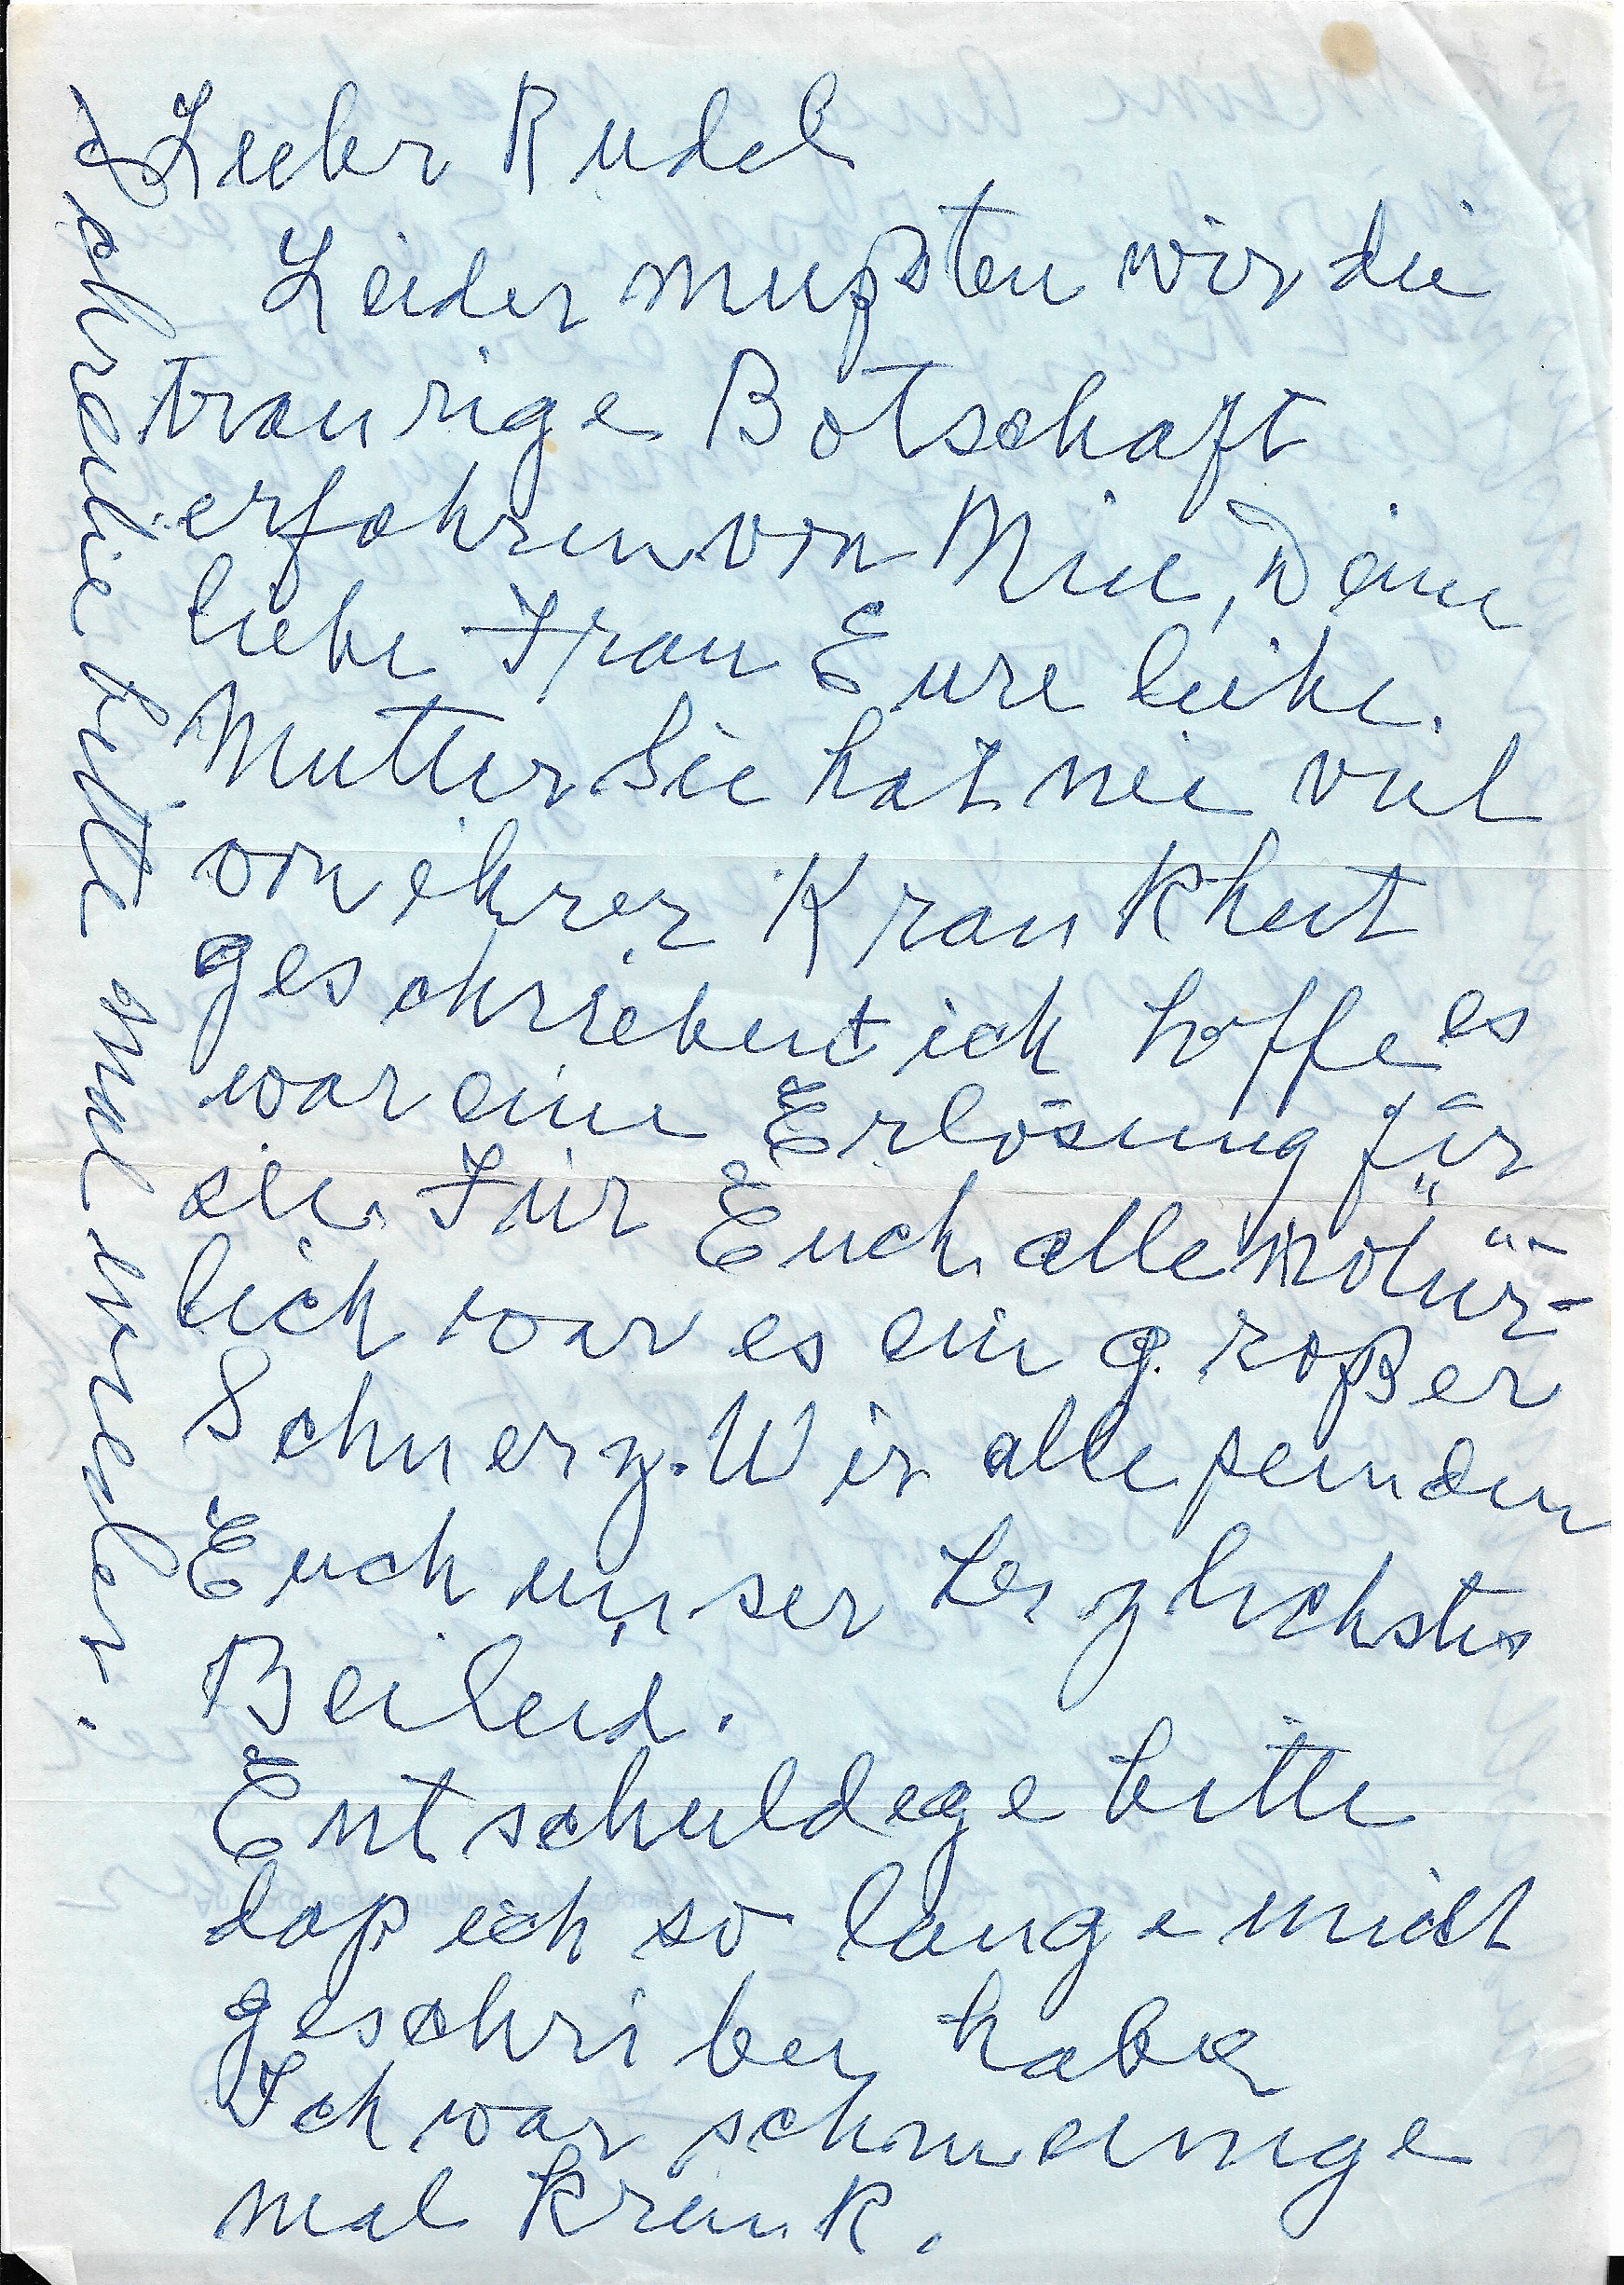 Lieber Rudel
Leider mußten wir die
traurige Botschaft
erfahren von Mie, Deine
liebe Frau Eure liebe
Mutter. Sie hat nie viel
von ihrer Krankheit
geschrieben ich hoffe es
war eine Erlösung für
sie. Für Euch alle natür-
lich war es ein großer
Schmerz. Wir alle senden
Euch unser herzlichstes
Beileid.
Entschuldige bitte
daß ich so lange nicht
geschrieben habe
Ich war schon einige
mal krank.
Schreibe bitte mal wieder.